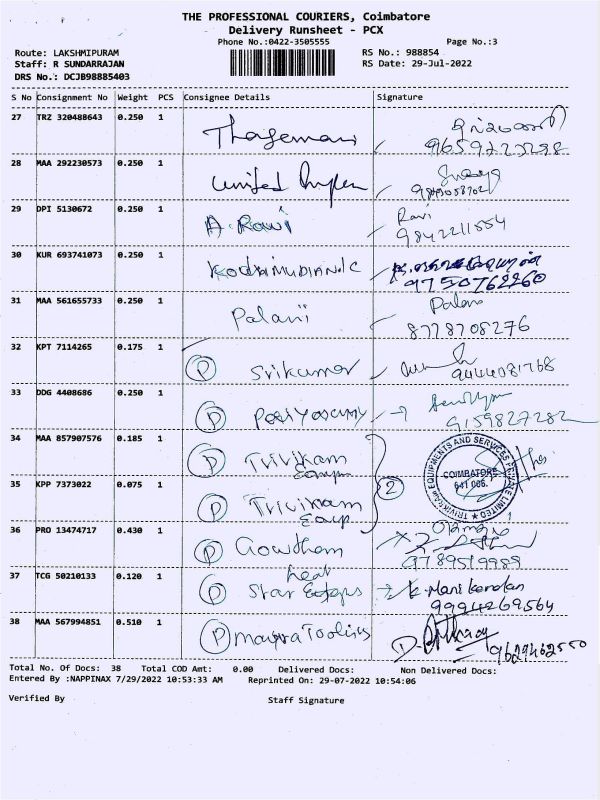 THE PROFESSIONAL COURIERS, Coimbatore
Delivery Runsheet - PCX
Phone No.:0422-3505555 Page No.:3
Route: LAKSHMIPURAM RS No.: 988854
Staff: R SUNDARRAJAN RS Date: 29-Jul-2022
DRS No.: DCJB98885403
S No Consignment No Weight PCS Consignee Details Signature
27 TRZ 320488643 0.250 1
9659223298
28 MAA 292230573 0.250 1
United
29 DPI 5130672 0.250 1
A. Ravi Ravi
9842211554
30 KUR 693741073 0.250 1
9750762260
31 MAA 561655733 0.250 1
Palani Palani
8778708276
32 KPT 7114265 0.175 1
P Srikumar 9444081768
33 DDG 4408686 0.250 1
P Periyasamy 9159827282
34 MAA 857907576 0.185 1
P Trivikam
35 KPP 7373022 0.075 1
P Trivikam
2
TRIVIKRAM EQUIPMENTS AND SERVICES PRIVATE LIMITED
COIMBATORE
641 006.
36 PRO 13474717 0.430 1
P Gowtham
9789519989
37 TCG 50210133 0.120 1
heat
P Star K. Manikandan
9994269564
38 MAA 567994851 0.510 1
P 9629462550
Total No. Of Docs: 38 Total COD Amt: 0.00 Delivered Docs: Non Delivered Docs:
Entered By :NAPPINAX 7/29/2022 10:53:33 AM Reprinted On: 29-07-2022 10:54:06
Verified By Staff Signature